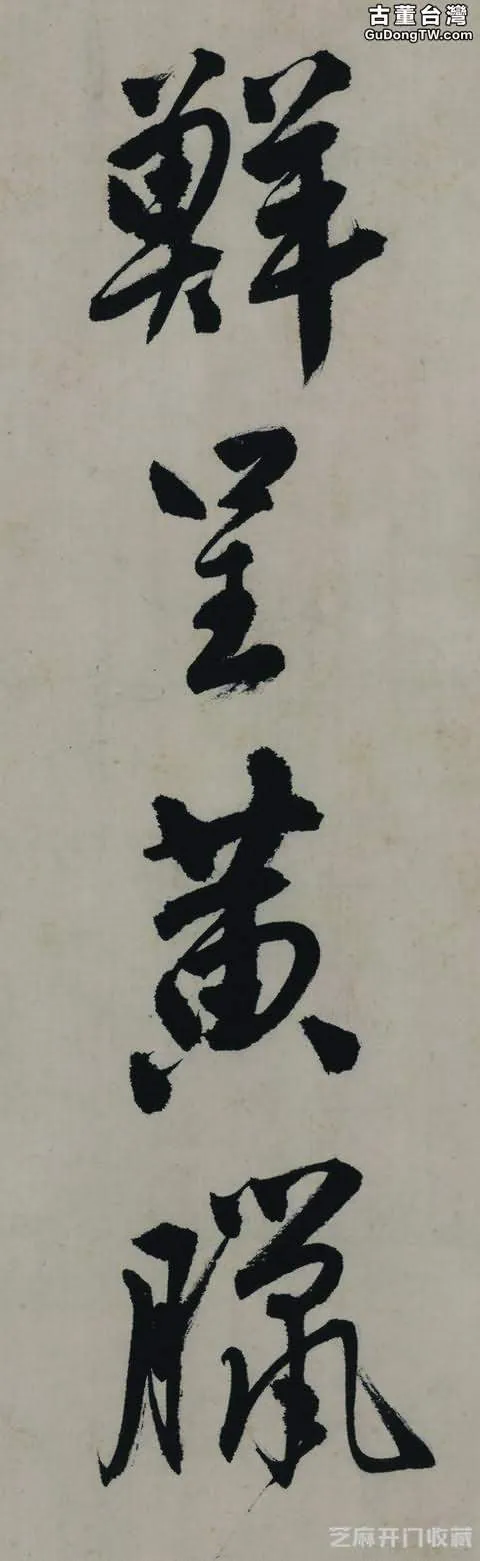 古董台灣
GuDongTW.com
鮮呈黄臘
芝麻开门收藏